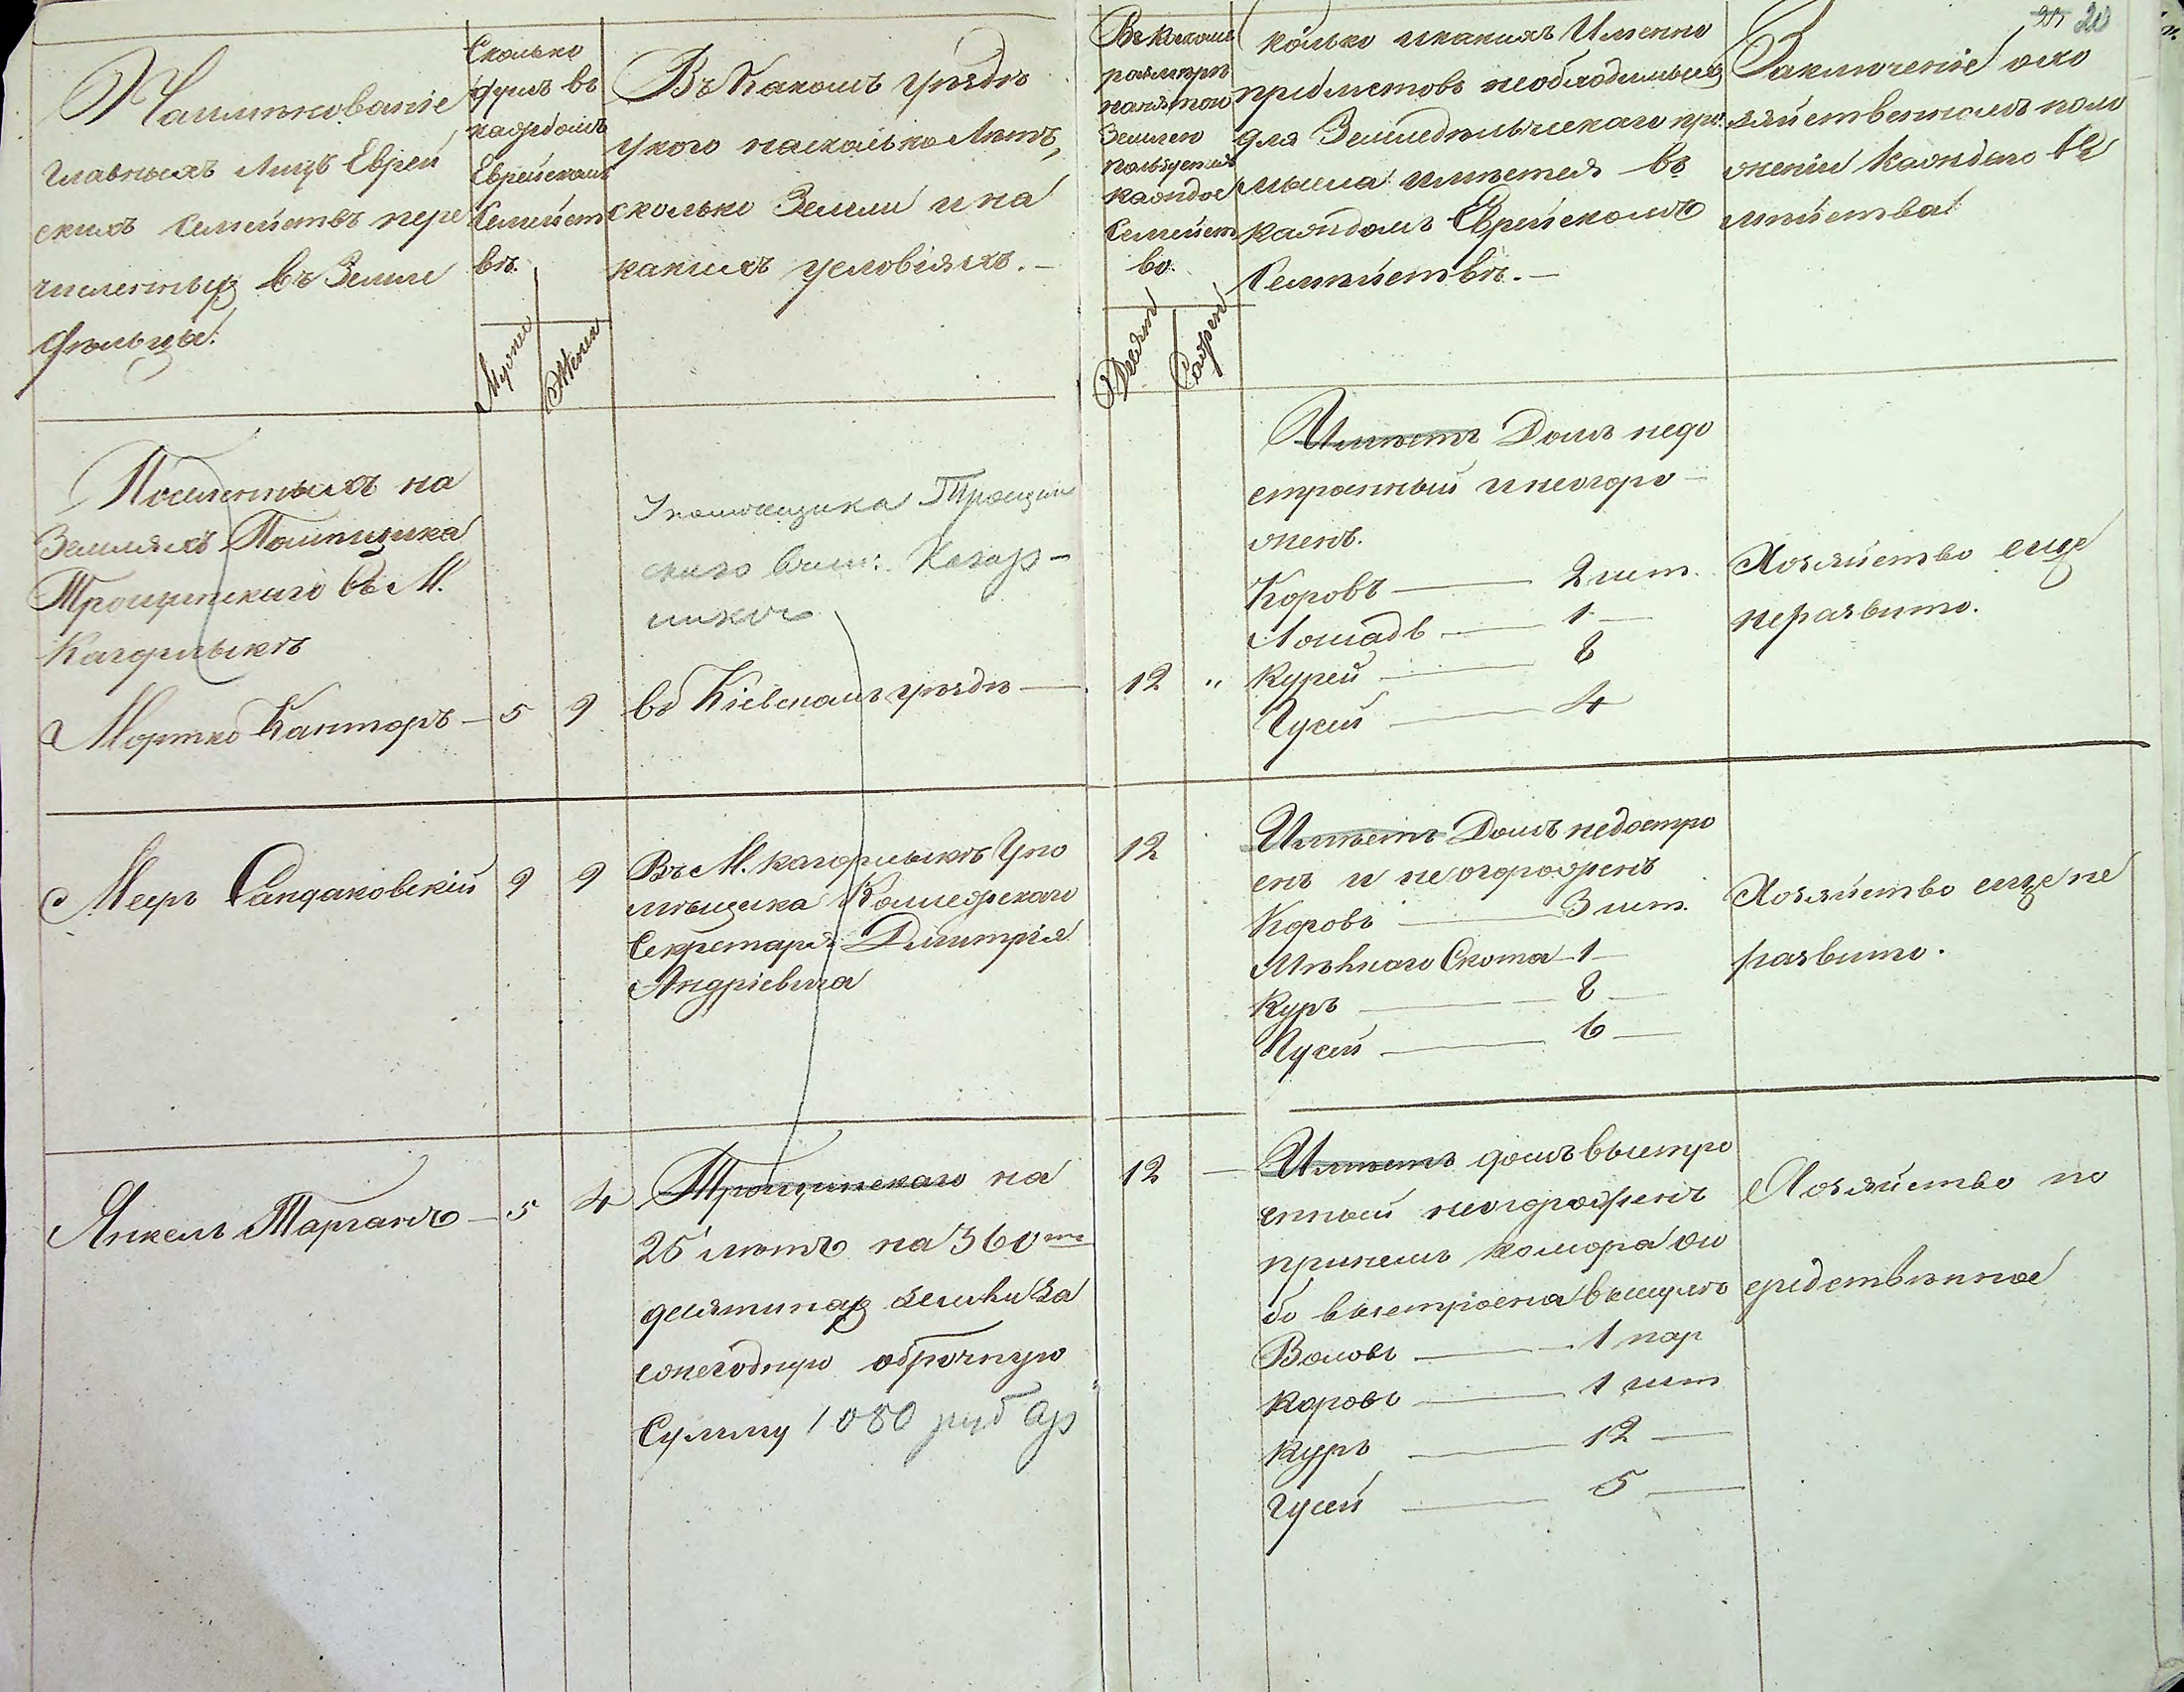 Наименованіе
главныхъ лицъ Еврей
скихъ Семействъ пере
численныхъ въ Земле
дѣльцы.
Сколько
душъ въ
каждомъ
Еврейскомъ
Семейст
вѣ.
Мужес
Женск
Въ Какомъ уѣздѣ
у кого на сколько Лѣтъ,
сколько Земли и на
какихъ условіяхъ. —
Въ какомъ
размѣрѣ
нанятою
Землею
пользуется
каждое
Семейст
во.
Десят
Сажен
колько и какихъ Именно
предметовъ необходимыхъ
для Земледѣльческаго про
мысла имѣется въ
каждомъ Еврейскомъ
Семействѣ. —
20
Заключеніе о хо
зяйственномъ поло
женіи каждаго Се
мейства
Поселенныхъ на
Земляхъ Помѣщика
Трощинскаго въ М.
Кагорлыкѣ
Мортко Канторъ — 5 9
У помѣщика Трощин
скаго
въ Кіевскомъ уѣздѣ —
12 „
Имѣетъ Домъ недо
строенный и неогоро —
женъ.
Коровъ — 2 шт.
Лошадь — 1 —
Курей — 8
Гусей — 4
Хозяйство еще
неразвито.
Меръ Сандаковскій 9 9
Въ М. Кагорлыкѣ У по
мѣщика Коллежскаго
Секретаря Димитрія
Андріевича
12
Имѣетъ Домъ недостро
енъ и неогороженъ
Коровъ — 3 шт.
Мѣлкаго Скота — 1 —
Куръ — 8 —
Гусей — 6 —
Хозяйство еще не
развито.
Янкель Тарганъ — 5 4
Трощинскаго на
25 лѣтъ на 360ти
десятинахъ земли за
ежегодную оброчную
Сумму 1080 руб
12 —
Имѣетъ домъ выстро
енный неогороженъ
при немъ комора
выстроена
Воловъ — 1 пар
Коровъ — 1 шт
Куръ — 12 —
Гусей — 5 —
Хозяйство по
средственное